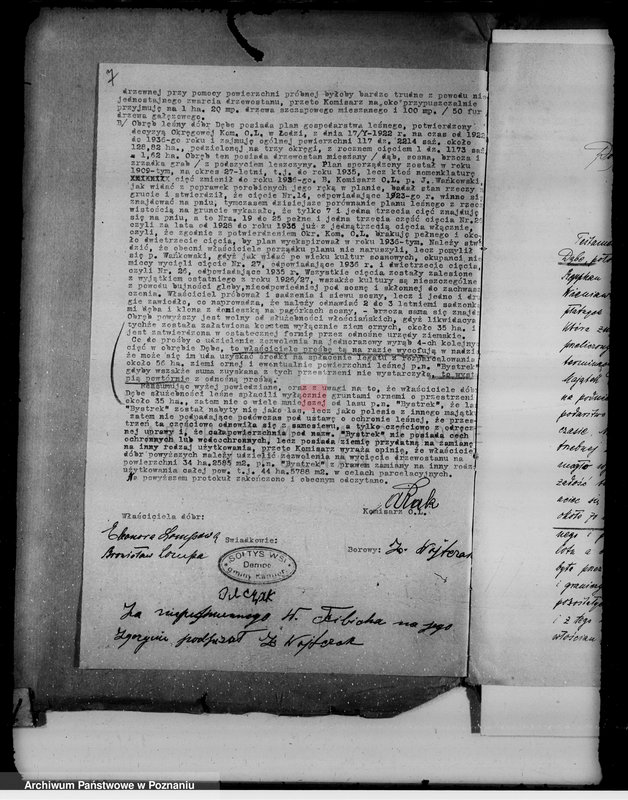 7
drzewnej przy pomocy powierzchni próbnej byłoby bardzo trudne z powodu nie
jednostajnego zwarcia drzewostanu, przeto Komisarz na oko przypuszczalnie
przyjmuje na 1 ha. 20 mp. drzewa szczapowego mieszanego i 100 mp. / 50 fur
drzewa gałęzowego.
B/ Obręb leśny dóbr Dębe posiada plan gospodarstwa leśnego, potwierdzony
decyzją Okręgowej Kom. O.L. w Łodzi, z dnia 17/V-1922 r na czas od 1922
do 1936-go roku i zajmuje ogólnej powierzchni 117 dz. 2214 saż. około
128,82 ha., podzielonej na trzy okręgi, z rocznem cięciem 1 dzs. 1173 saż
1,62 ha. Obręb ten posiada drzewostan mieszany / dąb, sosna, brzoza i
zrzadka grab / z podszyciem leszczyny. Plan sporządzony został w roku
1909-tym, na okres 27-letni, t.j. do roku 1935, lecz ktoś nomenklaturę
cięć zmienił do roku 1936-go. B. Komisarz O.L. p. J. Wańkowski
jak widać z poprawek porobionych jego ręką w planie, badał stan rzeczy na
gruncie i stwierdził, że cięcie Nr. 14, odpowiadające 1923-go r. winno się
znajdować na pniu, tymczasem dzisiejsze porównanie planu leśnego z rzeczy
wistością na gruncie wykazało, że tylko 7 i jedna trzecia cięć znajduję
się na pniu, a to Nra. 19 do 25 pełne i jedna trzecia część cięcia Nr.
czyli za lata od 1928 do roku 1935 już z jednątrzecią cięcia włącznie,
czyli, że zgodnie z potwierdzeniem Okr. Kom. O.L. brakuję pełnego i oko
ło ćwietrzecie cięcia, by plan wyekspirował w roku 1936-tym. Należy stwie
dzić, że obecni właściciele porządku planu nie naruszyli, lecz pomylił
się p. Wańkowski, gdyż jak widać po wieku kultur sosnowych, okupanci nie
mieccy wycięli cięcie Nr. 27, odpowiadające 1936 r. i ćwietrzecie cięcia,
czyli Nr. 26, odpowiadające 1935 r. Wszystkie cięcia zostały zalesione
z wyjątkiem ostatniego z roku 1926/27, wszakże kultury są nieszczególne
z powodu bujności gleby, nieodpowiedniej pod sosnę i skłonnej do zachwasz
czenia. Właściciel próbował i sadzenia i siewu sosny, lecz i jedno i dru
gie zawiodło, co naprowadza, że należy odnawiać 2 do 3 letniemi sadzonka
mi dęba i klona z domieszką na pagórkach sosny, - brzoza sama się znajdzie
Obręb powyższy jest wolny od służebności włościańskich, gdyż likwidacya
tychże została załatwiona kosztem wyłącznie ziem ornych, około 35 ha. i
jest zatwierdzona w ostatecznej formie przez odnośne urzędy ziemskie.
Co do prośby o udzielenie zezwolenia na jednorazowy wyrąb 4-ch kolejnych
cięć w obrębie Dębe, to właściciele prośbę tą na razie wycofują w nadziei
że może się im uda uzyskać środki na spłacenie legatu z rozparcelowania
około 56 ha. ziemi ornej i ewentualnie powierzchni leśnej p.n. "Bystrek"
gdyby wszakże suma uzyskana z tych przestrzeni nie wystarczyła, to wystą
pią powtórnie z odnośną prośbą.
Resumując wyżej powiedziane, oraz z uwagi na to, że właściciele dóbr
Dębe służebności leśne spłacili wyłącznie gruntami ornemi o przestrzeni
około 35 ha., zatem nie o wiele mniejszej od lasu p.n. "Bystrek", że las
"Bystrek" został nabyty nie jako las, lecz jako polesie z innego majątku
zatem nie podpadające podówczas pod ustawę o ochronie leśnej, że przes-
trzeń ta częściowo odnowiła się z samosiewu, a tylko częściowo z ręcz
nej uprawy i, że cała powierzchnia pod nazw. "Bystrek" nie posiada cech
ochronnych lub wodochronnych, lecz posiada ziemię przydatną na zamianę
na inny rodzaj użytkowania, przeto Komisarz wyraża opinię, że właścicielom
dóbr powyższych należy udzielić zezwolenia na wycięcie drzewostanu na
powierzchni 34 ha. 2585 m2. p.n. "Bystrek" z prawem zamiany na inny rodzaj
użytkowania całej pow. t.j. 44 ha. 5788 m2. w celach parcelacyjnych.
Na powyższem protokuł zakończono i obecnym odczytano.
Właściciela dóbr:
Komisarz O.L.
Eleonora Łompowa
Bronisław Łompa
Świadkowie:
Borowy: Z. Wojtczak
SOŁTYS WSI
Dembe
gminy Kamień
Olczak
Za niepiśmiennego H. Fibicha na jego
życzenie podpisał Z. Wojtczak
Dębe
około 70
i z tego
włościan
Archiwum Państwowe w Poznaniu